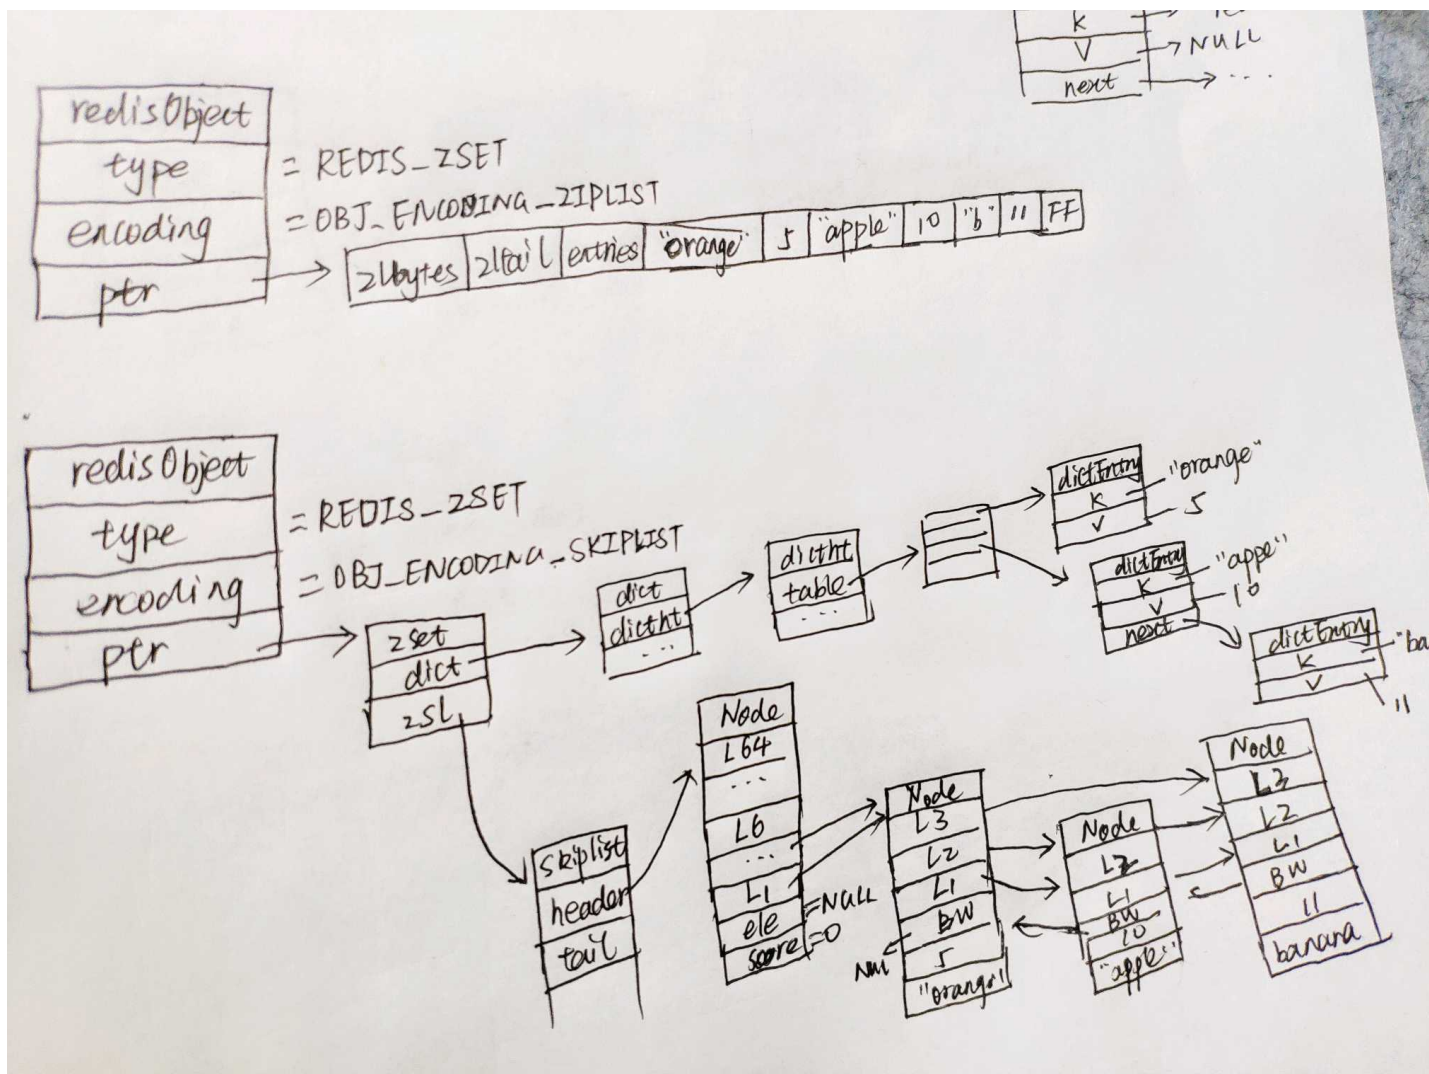 K
V → NULL
next → ...
redisObject
type = REDIS_ZSET
encoding = OBJ_ENCODING_ZIPLIST
ptr → zlbytes zltail entries "orange" 5 "apple" 10 "b" 11 FF
redisObject
type = REDIS_ZSET
encoding = OBJ_ENCODING_SKIPLIST
ptr
zset
dict
zsl
dict
dictht
...
dictht
table
...
dictEntry
K "orange"
V 5
dictEntry
K "appe"
V 10
next
dictEntry
K "ba
V 11
skiplist
header
tail
Node
L64
...
L6
...
L1
ele =NULL
score =0
Node
L3
L2
L1
BW
5
"orange"
Node
L2
L1
BW
10
"apple"
Node
L3
L2
L1
BW
11
banana